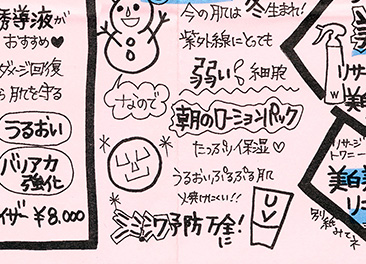 誘導液が
おすすめ♥
ダメージ回復
ら肌を守る
うるおい
バリアカ
強化
イザー ¥8,000
今の肌は冬生まれ!
紫外線にとても
弱い細胞
なので
朝のローションパック
たっぷり保湿♡
うるおいぷるぷる肌
火焼けにくい!!
予防万全に!
UV
W
リサー
美白
リサージ
トワニー
美白美
リニ
別紙みてネ